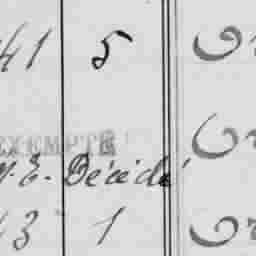 41 5
EXEMPTÉ
Y. E. Décédé
43 1